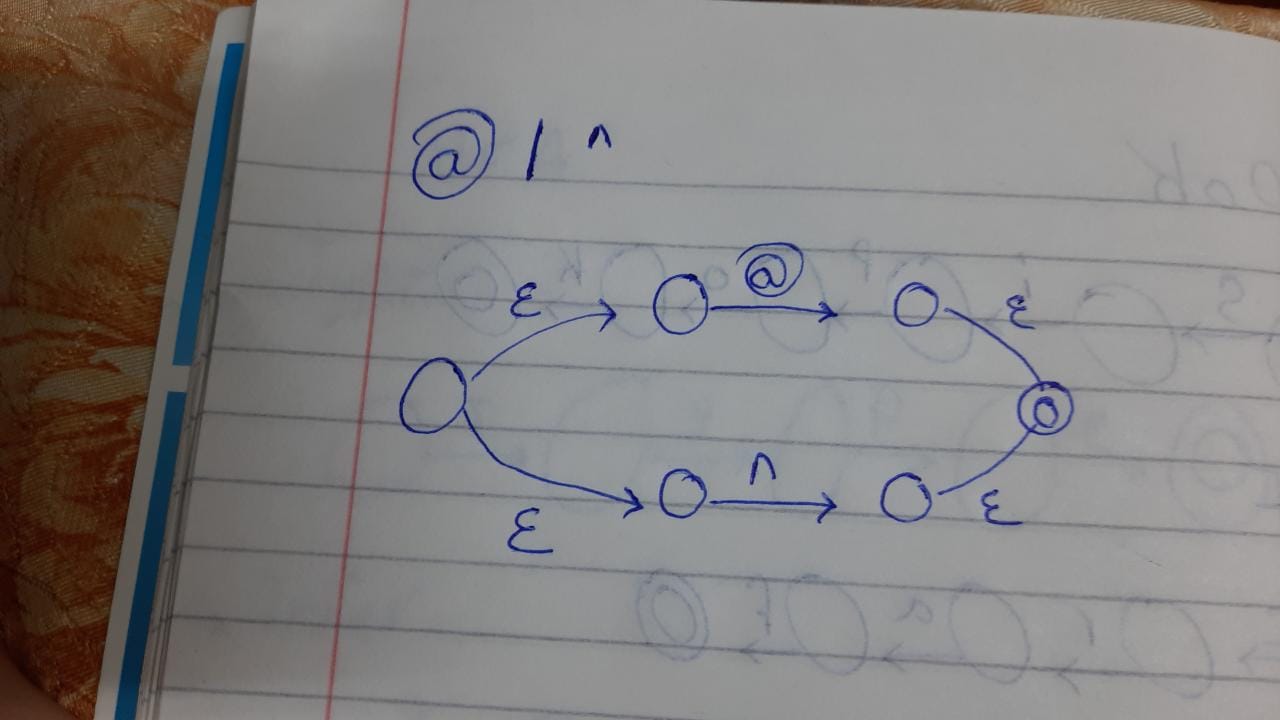 @ | ^
ε @ ε
ε ^ ε